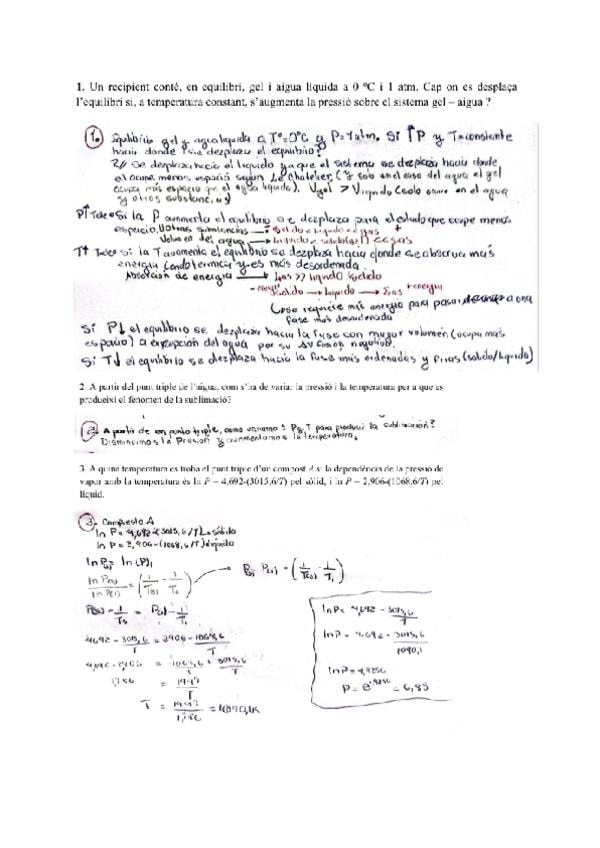 1. Un recipient conté, en equilibri, gel i aigua líquida a 0 ºC i 1 atm. Cap on es desplaça
l'equilibri si, a temperatura constant, s'augmenta la pressió sobre el sistema gel – aigua ?
1. Equilibrio gel y agua liquida a Tº=0ºC y P=1atm. Si ↑P y T=constante
hacia donde se desplaza el equilibrio?
R// Se desplaza hacia el liquido ya que el sistema se desplaza hacia donde
el ocupe menos espacio según Le Chatelier. (Y solo en el caso del agua el gel
ocupa más espacio que el agua liquida). Vgel > Vliquido (solo ocurre en el agua
y otras sustancias)
P↑ Si la P aumenta el equilibrio se desplaza para el estado que ocupe menos
espacio. Volumen del agua → liquido < solido (gel) < gas
T↑ Si la T aumenta el equilibrio se desplaza hacia donde se absorva más
energia (endotermica) y es más desordenada.
Absorción de energia → Gas >> liquido > solido
- energia solido → liquido → Gas + energia
requiere más energia para pasar a una
fase más desordenada
Si P↓ el equilibrio se desplaza hacia la fase con mayor volumen (ocupa más
espacio) a excepción del agua por su ΔV fusión negativo.
Si T↓ el equilibrio se desplaza hacia la fase más ordenadas y frias (solido/liquido)
2. A partir del punt triple de l'aigua, com s'ha de variar la pressió i la temperatura per a que es
produeixi el fenomen de la sublimació?
2. A partir de un punto triple, como variamos P y T para producir la sublimación?
Disminuimos la Presion y aumentamos la temperatura.
3. A quina temperatura es troba el punt triple d'un compost A si la dependència de la pressió de
vapor amb la temperatura és ln P = 4,692-(3015,6/T) pel sòlid, i ln P = 2,906-(1068,6/T) pel
líquid.
3. Compuesto A
ln P= 4,692-(3015,6/T) → sólido
ln P= 2,906-(1068,6/T) liquido
ln P(s) = ln (P)l
ln P(s) / ln P(l) = (1/T(s) - 1/Tl) → P(s) P(l) - (1/T(s) - 1/Tl)
P(s) - 1/Ts = P(l) - 1/Tl
4,692 - 3015,6/T = 2,906 - 1068,6/T
4,692 - 2,906 = -1068,6 + 3015,6 / T
1,786 = 1947/T
T = 1947/1,786 = 1090,1K
ln P= 4,692 - 3015,6/T
ln P= 4,692 - 3015,6/1090,1
ln P=
P= = 6,85